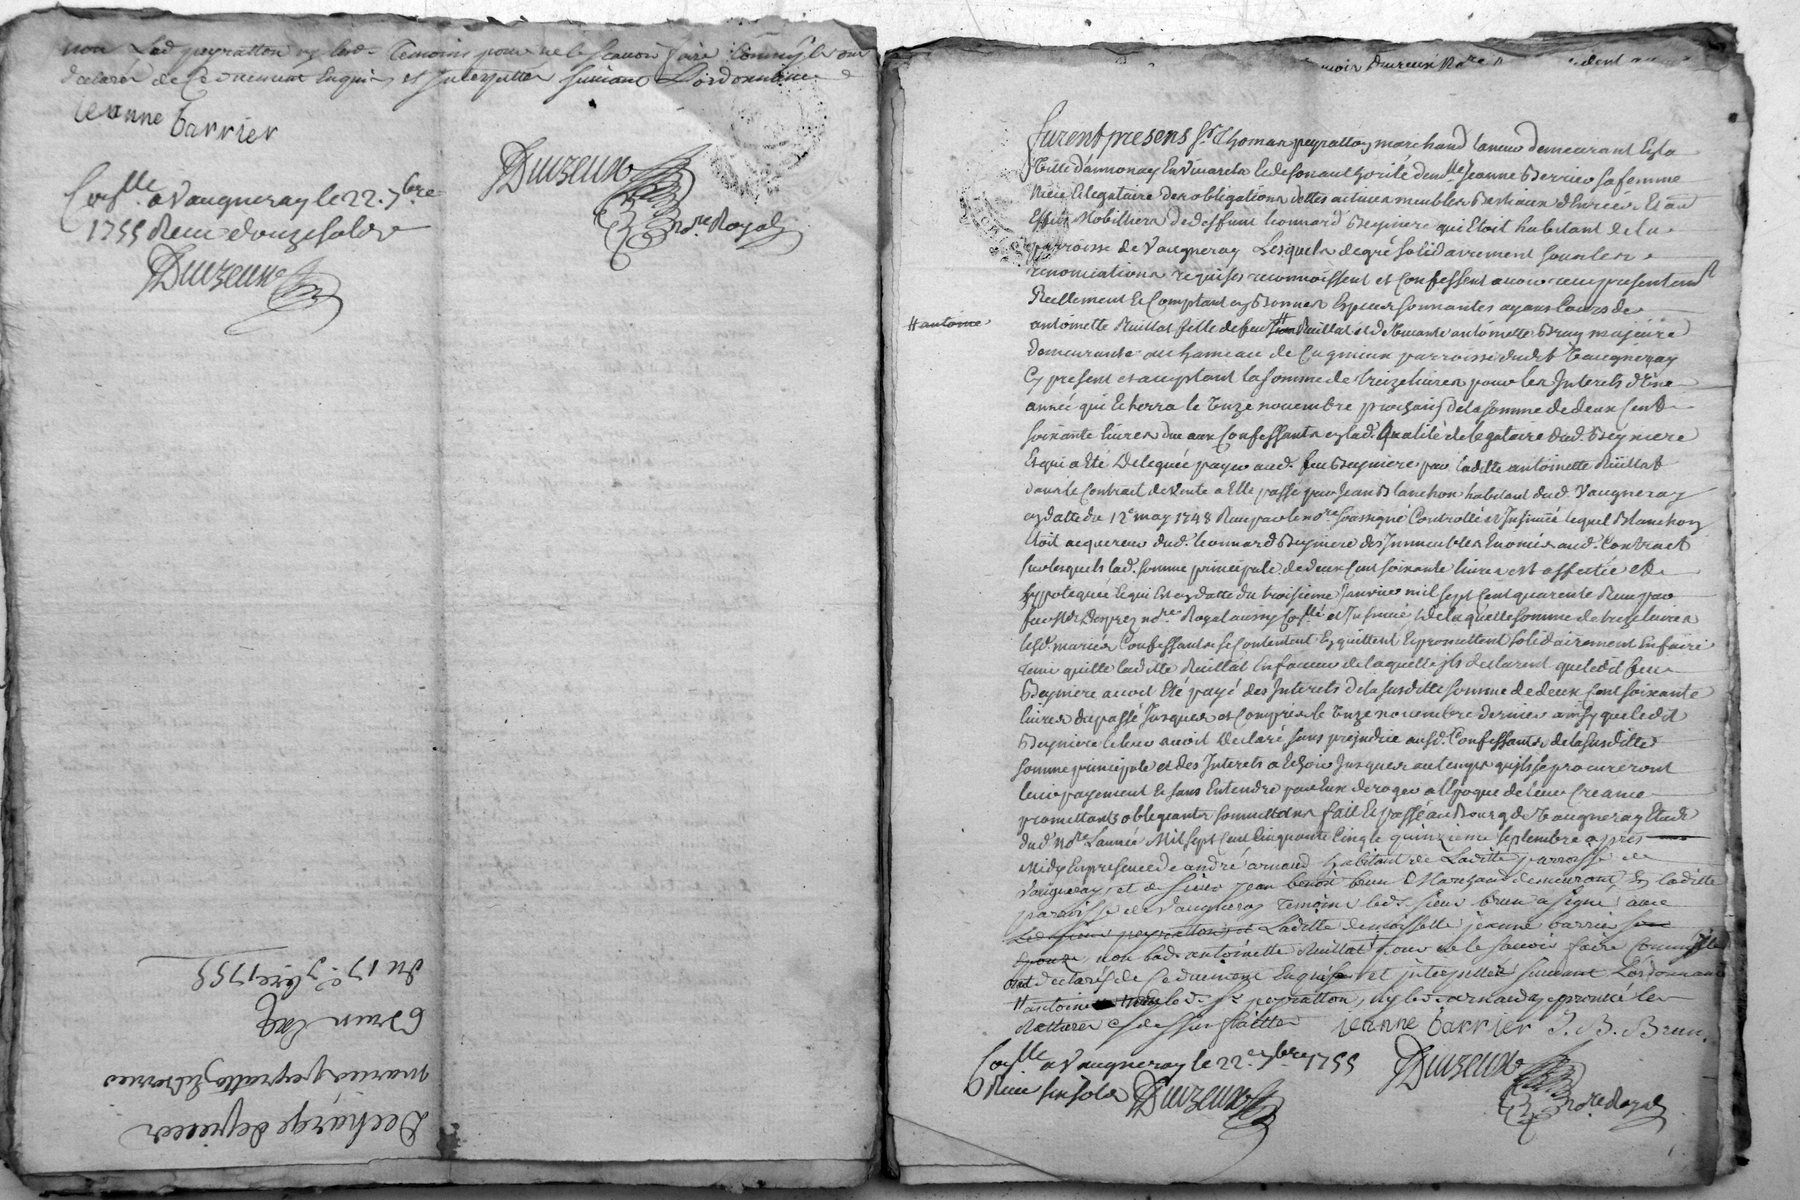 non Led peyratton ny lesd. Temoins pour ne le scavoir faire comm'jls ont
declaré de ce deument Enquis et Jnterpellés suivant L'ordonnance
jeanne barrier
Conllé a Vaugneray le 22. 7bre
1755 Reçu douze sols
Duizeux
Duizeux
Nore Royal
Decharge de pieces
mariés peyratton
Brun
Du 17e 7bre 1755
Furent presens Sr. Thomas peyratton marchand taneur demeurant En la
Ville d'annonay En Vivarets Et de son authorité demlle Jeanne Berrier sa femme
Niece Et legataire des obligations dettes actives meubles Bestiaux denrées Et au
Effets Mobilliers de deffunt leonnard Beyniere qui Etoit habitant de la
parroisse de Vaugneray Lesquels de gré solidairement sous les
renonciations requises reconnoissent et Confessent avoir reçu presentemt
Reellement Et Comptant En Bonnes Especes sonnantes ayans Cours de
antoinette Ruillat fille de feu # Ruillat et de Vivante antoinette Bruy majeure
# antoine
Demeurante au hameau de Cugnieux parroisse dudt Vaugneray
Cy present et acceptant la somme de treize livres pour les Jnterets d'une
année qui Echerra le Onze novembre prochain de la somme de deux Cent
soixante livres due aux Confessants En lad. Qualité de legataire dud. Beyniere
Et qui a Eté Deleguée payer aud. feu Beyniere par ladtte antoinette Ruillat
dans le Contrait de Vente a Elle passé par Jean Blanchon habitant dud. Vaugneray
En datte du 12e may 1748 Reçu par le nore soussigné Controllé et Jnsinué lequel Blanchon
Etoit acquereur dud. leonnard Beyniere des Jmmeubles Enoncés aud. Contract
sur lesquels lad. somme principale de deux Cent soixante livres est affectée Et
hypotequée Et qui Est En datte du troisieme Janvier mil sept Cent quarente Reçu par
feu Me Desprez nore Royal aussy Conllé et Jnsinué De laquelle somme de treize livres
lesd. mariés Confessants se Contentent En quittent Et promettent solidairement En faire
tenir quitte ladtte Ruillat En faveur de laquelle jls declarent que ledit feu
Beyniere avoit Eté payé des Jnterets de la susditte somme de deux Cent soixante
livres du passé Jusques et Compris le Onze novembre dernier ainsy que ledit
Beyniere le leur avoit Declaré sans prejudice ausd. Confessants de la susditte
somme principale et des Jnterets a Echoir Jusques au temps qu'jls se procureront
leur payement Et sans Entendre par Eux deroger a l'Epoque de leur Creance
promettants obligeants soumettans fait Et passé au Bourg de Vaugneray Etude
dud. nore L'année Mil sept Cent Cinquante Cinq Le quinzieme septembre apres
Midy En presence de andré arnaud habitant de Laditte parroisse de
Vaugneray, et de sieur jean benoit brun Marchand demeurant En laditte
parroisse de Vaugneray Temoins led. sieur brun a signé avec
Led sieur peyratton et Laditte demoiselle jeanne barrier son
Epouze non lad. antoinette Ruillat pour ne le scavoir faire comm'jlle
ont declaré de ce deument Enquise et jnterpellée suivant L'ordonnance
# antoine led. sr peyratton, ny led. arnaud approuvé les
Ratures cy dessus faittes jeanne barrier J. B. Brun.
Conllé a Vaugneray le 22e 7bre 1755
Reçu six sols Duizeux
Duizeux
Nore Royal